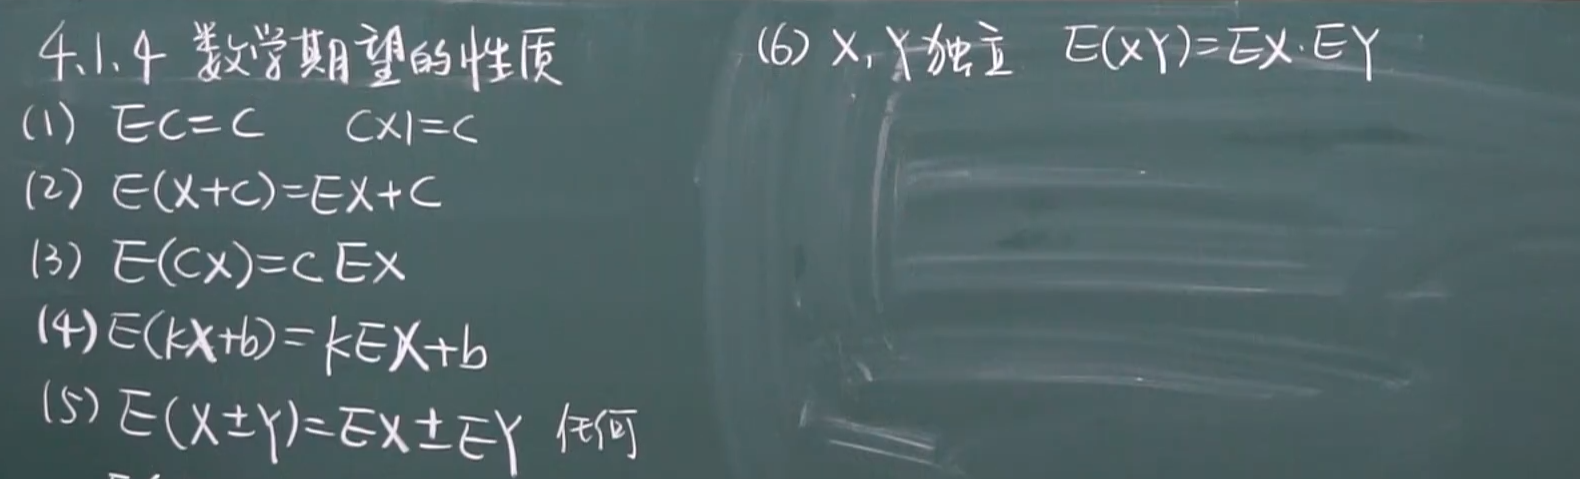 4.1.4 数学期望的性质
(1) EC=C C×1=C
(2) E(X+C)=EX+C
(3) E(CX)=CEX
(4) E(kX+b)=kEX+b
(5) E(X±Y)=EX±EY 任何
(6) X,Y独立 E(XY)=EX·EY